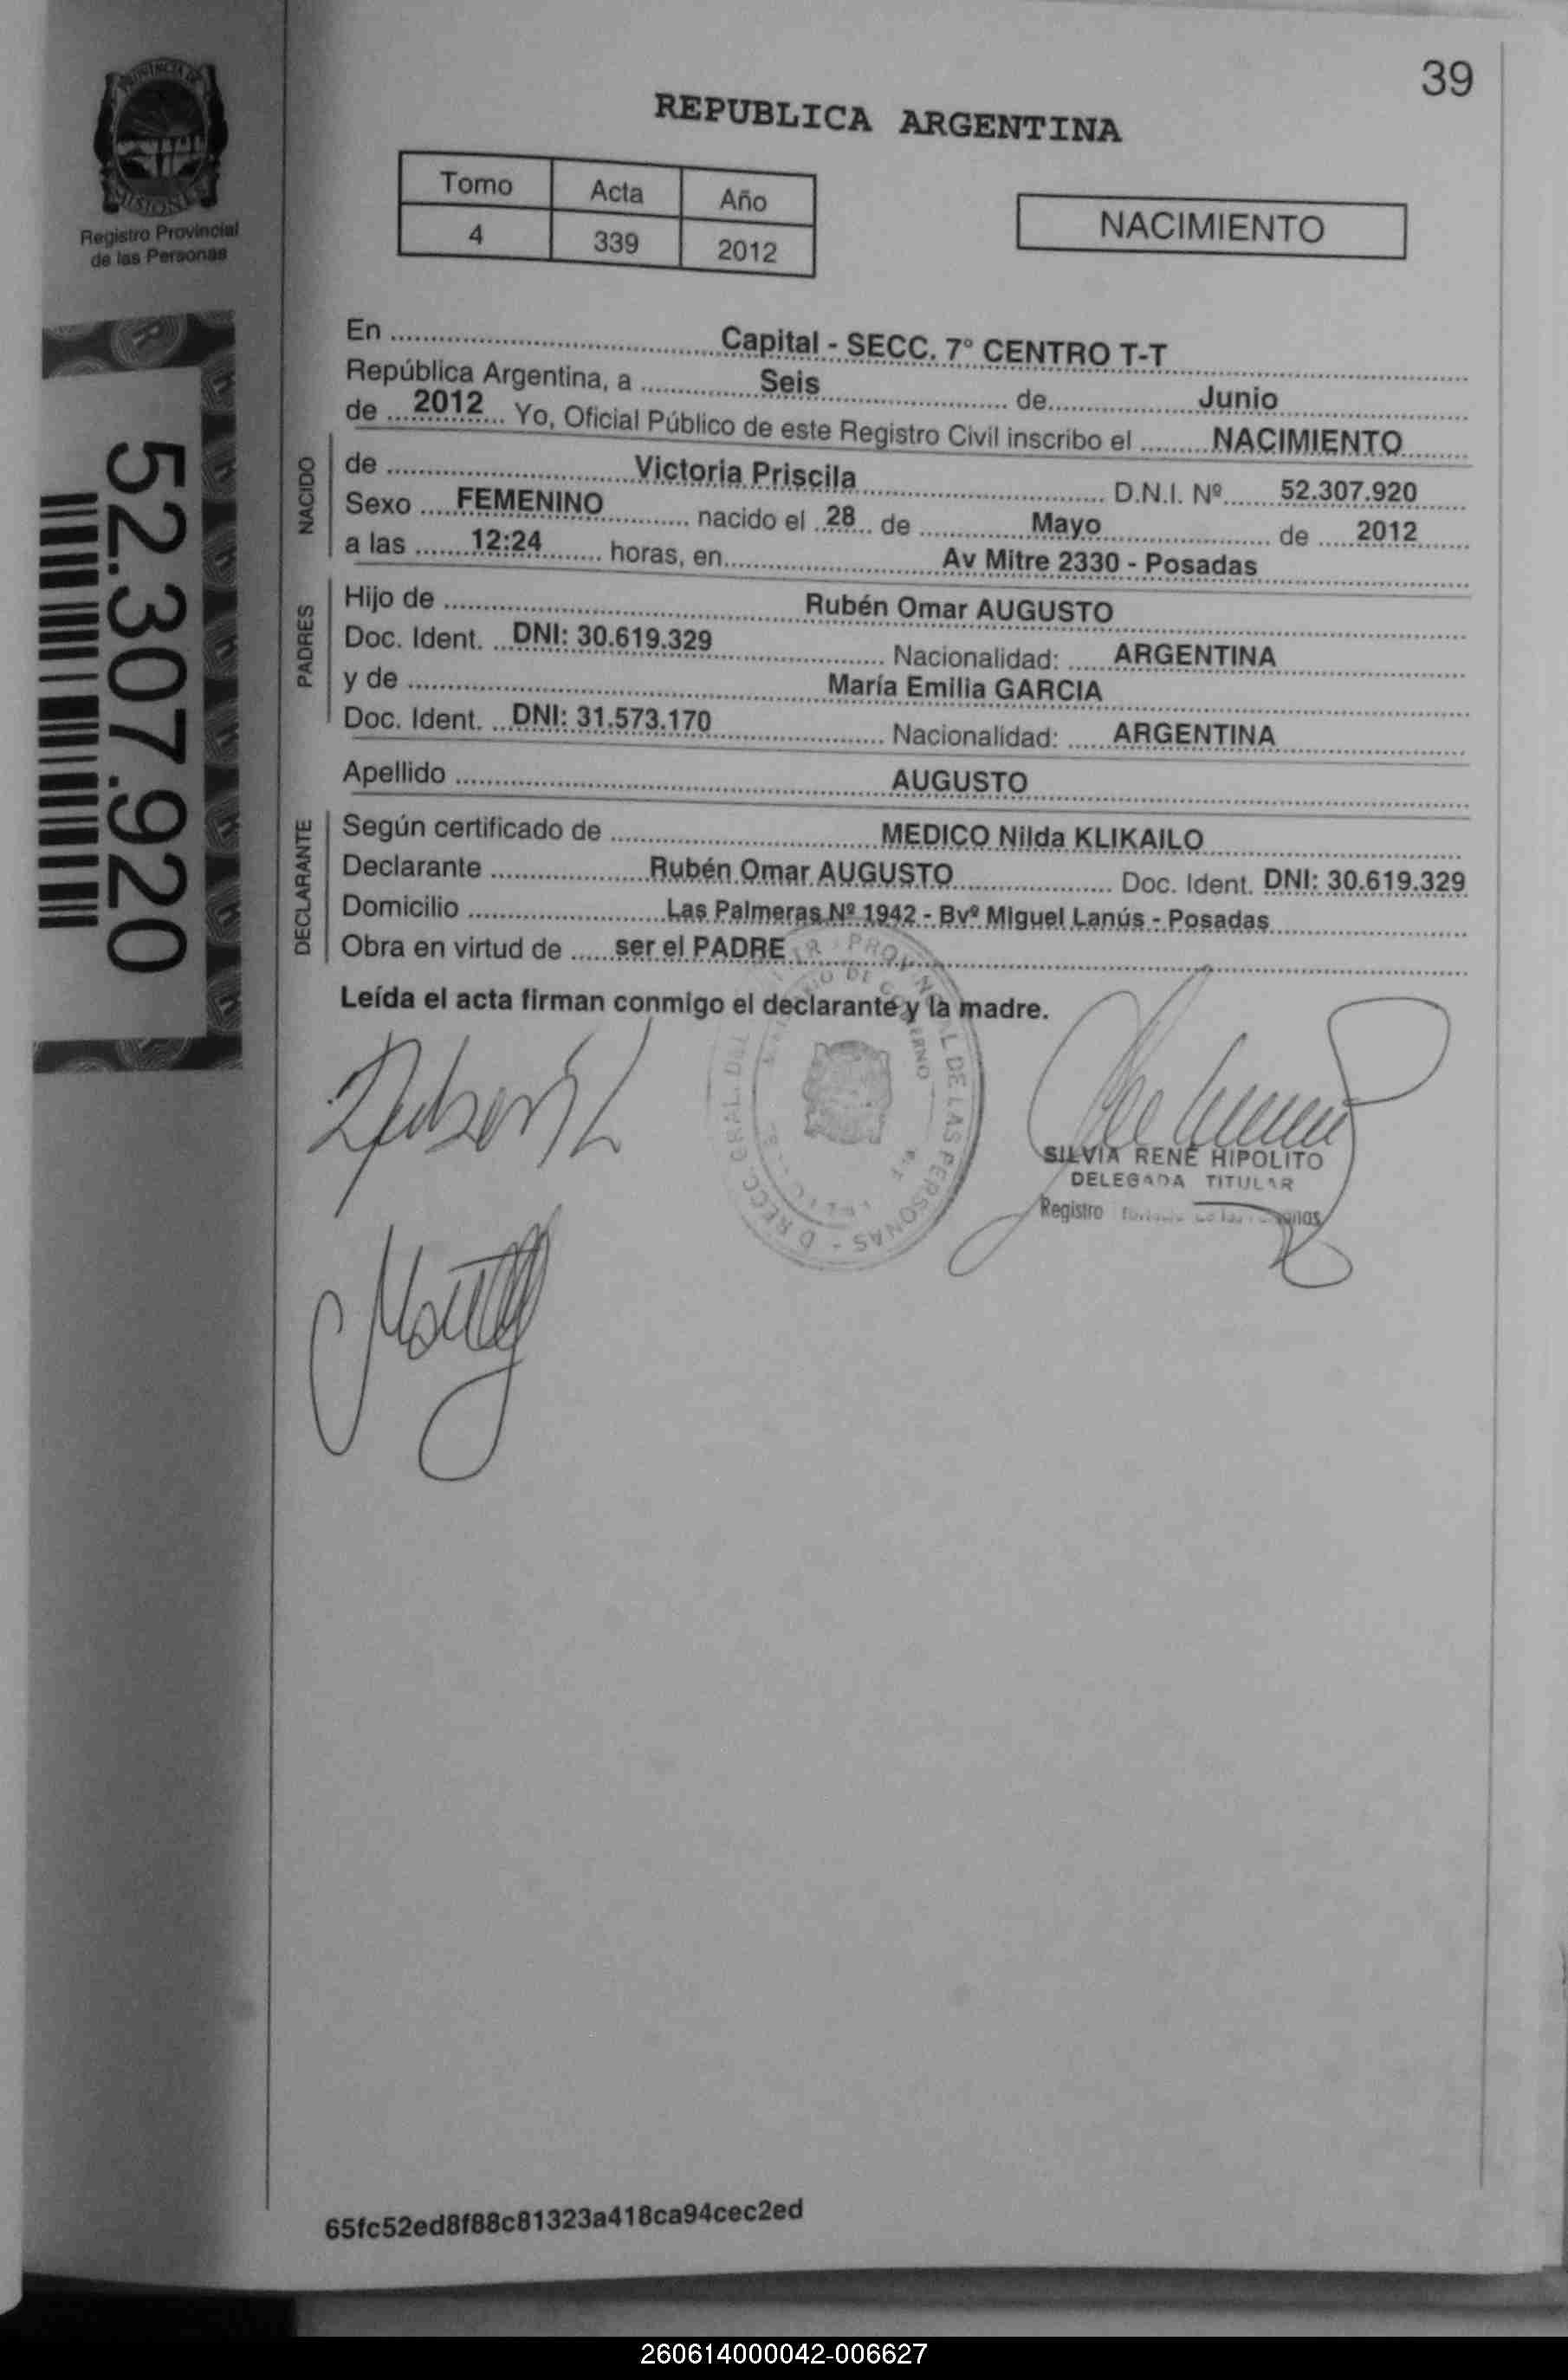 39
PROVINCIA DE
MISIONES
Registro Provincial
de las Personas
REPUBLICA ARGENTINA
Tomo Acta Año
4 339 2012
NACIMIENTO
52.307.920
En ........ Capital - SECC. 7º CENTRO T-T ........
República Argentina, a ........ Seis ........ de ........ Junio ........
de ... 2012 ... Yo, Oficial Público de este Registro Civil inscribo el ........ NACIMIENTO ........
NACIDO
de ........ Victoria Priscila ........ D.N.I. Nº ...... 52.307.920 ......
Sexo .... FEMENINO ........ nacido el .. 28 .. de ........ Mayo ........ de ..... 2012 ......
a las ....... 12:24 ....... horas, en ........ Av Mitre 2330 - Posadas ........
PADRES
Hijo de ........ Rubén Omar AUGUSTO ........
Doc. Ident. ... DNI: 30.619.329 ........ Nacionalidad: ..... ARGENTINA ........
y de ........ María Emilia GARCIA ........
Doc. Ident. ... DNI: 31.573.170 ........ Nacionalidad: ..... ARGENTINA ........
Apellido ........ AUGUSTO ........
DECLARANTE
Según certificado de ........ MEDICO Nilda KLIKAILO ........
Declarante ........ Rubén Omar AUGUSTO ........ Doc. Ident. DNI: 30.619.329
Domicilio ........ Las Palmeras Nº 1942 - Bvº Miguel Lanús - Posadas ........
Obra en virtud de ...... ser el PADRE ........
Leída el acta firman conmigo el declarante y la madre.
DE LAS PERSONAS
SILVIA RENÉ HIPOLITO
DELEGADA TITULAR
Registro
65fc52ed8f88c81323a418ca94cec2ed
260614000042-006627